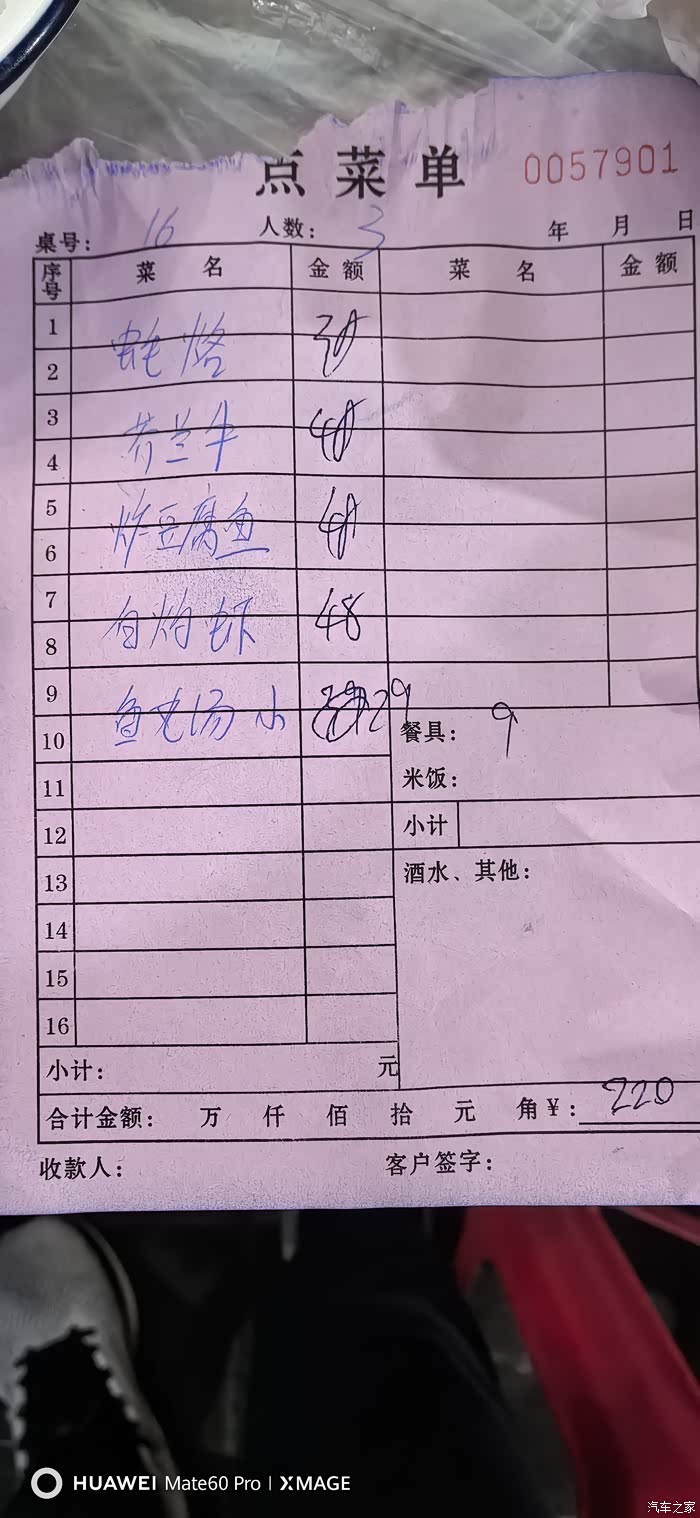 点菜单 0057901
桌号: 16 人数: 3 年 月 日
序号 菜名 金额 菜名 金额
1
蚝烙 38
2
3
芥兰牛 48
4
5
炸豆腐鱼 48
6
7
白灼虾 48
8
9
鱼丸汤 小 29
10
餐具: 9
米饭:
11
12
小计
13
酒水、其他:
14
15
16
小计: 元
合计金额: 万 仟 佰 拾 元 角 ¥: 220
收款人: 客户签字:
HUAWEI Mate60 Pro | XMAGE
汽车之家